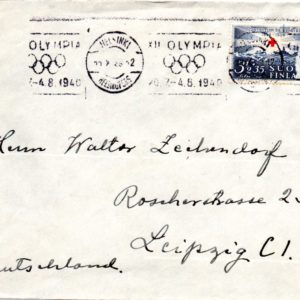 OLYMPIA
7-4.8.1940
HELSINKI
HELSINGFORS
XII OLYMPIA
20.7-4.8.1940
SUOMI
FINLAND
Herrn Walter Zechendorf
Roscherstrasse 2
Leipzig C1.
Deutschland.